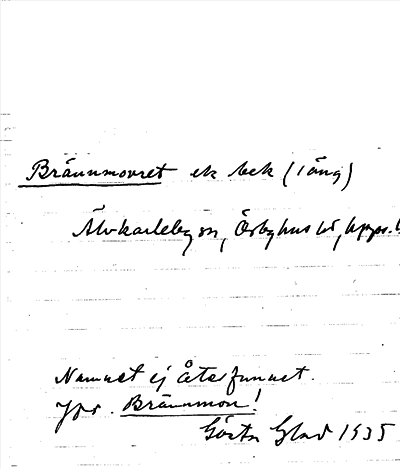 Brännmovret ek bek (1 äng)
Älvkarleby sn, Örbyhus hd, Upps. l
Namnet ej återfunnet.
Jfr. Brännmon!
Gösta Glad 1935